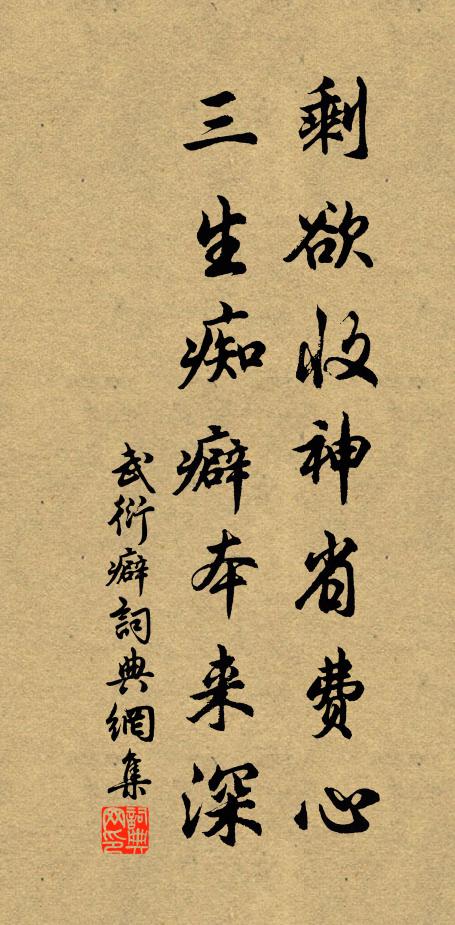 剩欲收神省費心
三生痴癖本来深
武衍癖詞典網集
詞典网印